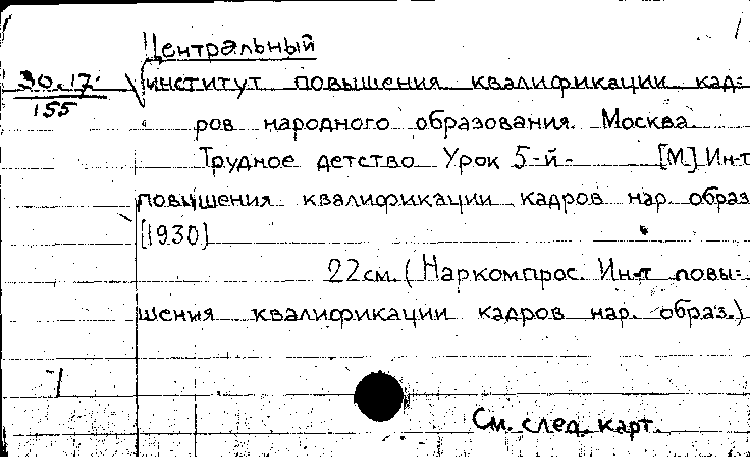 Центральный
30.17. институт повышения квалификации кад=
155
ров народного образования. Москва.
Трудное детство Урок 5-й- [М] Ин-т
повышения квалификации кадров нар. образ
[1930]
22 см. (Наркомпрос. Ин-т повы=
шения квалификации кадров нар. образ.)
См. след. карт.